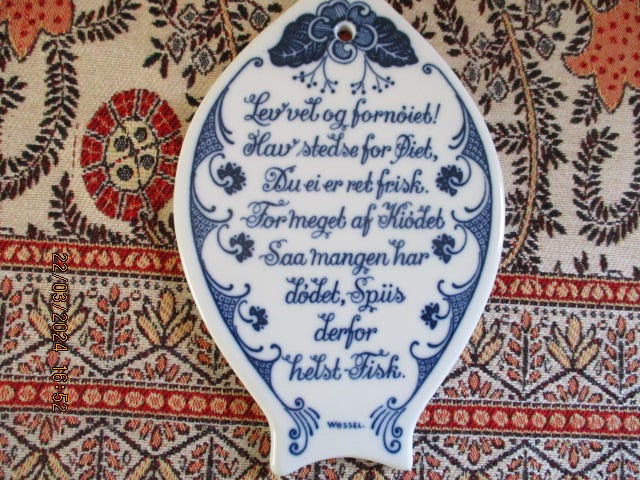 Lev vel og fornöiet!
Hav stedse for Øiet,
Du ei er ret frisk.
For meget af Kiödet
Saa mangen har
dödet, Spüs
derfor
helst Fisk.
WESSEL.
22/03/2024 16:52